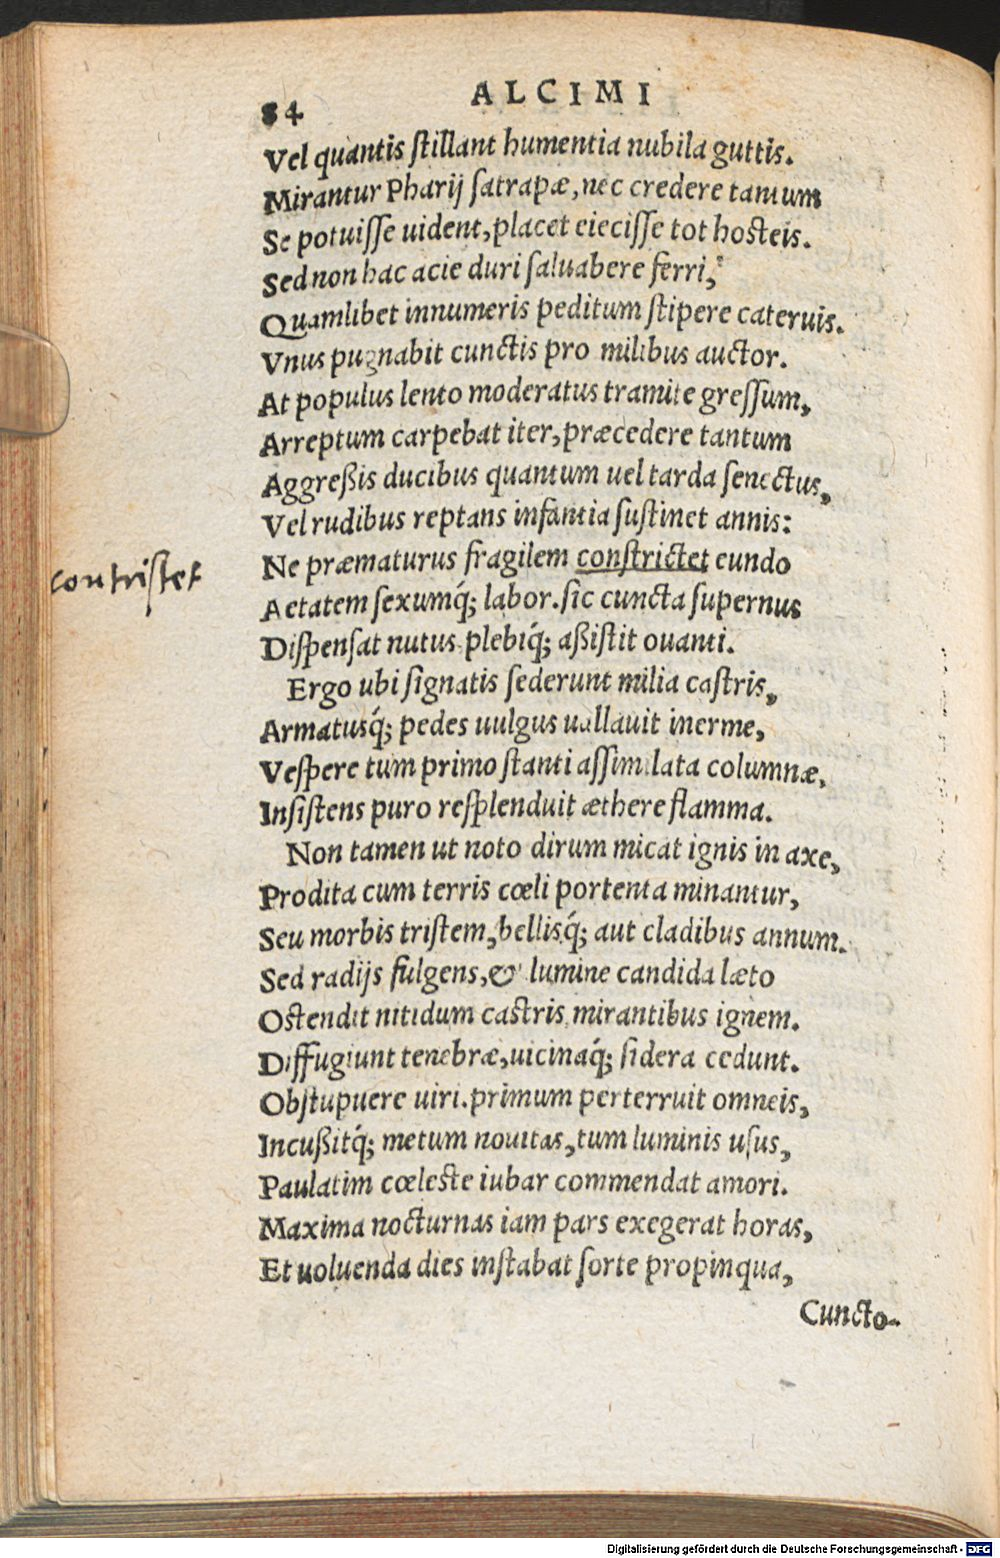 84
ALCIMI
Vel quantis ſtillant humentia nubila guttis.
Mirantur Pharij ſatrapæ, nec credere tantum
Se potuiſſe uident, placet eieciſſe tot hosteis.
Sed non hac acie duri ſaluabere ferri,
Quamlibet innumeris peditum ſtipere cateruis.
Vnus pugnabit cunctis pro milibus auctor.
At populus lento moderatus tramite greſſum,
Arreptum carpebat iter, præcedere tantum
Aggreßis ducibus quantum uel tarda ſenectus,
Vel rudibus reptans infantia ſuſtinet annis:
Ne præmaturus fragilem conſtrictet eundo
contriſtet
Aetatem ſexumq́; labor. ſic cuncta ſupernus
Diſpenſat nutus plebiq́; aßiſtit ouanti.
Ergo ubi ſignatis ſederunt milia caſtris,
Armatusq́; pedes uulgus uallauit inerme,
Veſpere tum primo ſtanti aſſimilata columnæ,
Inſiſtens puro reſplenduit æthere flamma.
Non tamen ut noto dirum micat ignis in axe,
Prodita cum terris cœli portenta minantur,
Seu morbis triſtem, bellisq́; aut cladibus annum.
Sed radijs fulgens, & lumine candida læto
Ostendit nitidum castris mirantibus ignem.
Diffugiunt tenebræ, uicinaq́; ſidera cedunt.
Obſtupuere uiri. primum perterruit omneis,
Incußitq́; metum nouitas, tum luminis uſus,
Paulatim cœleste iubar commendat amori.
Maxima nocturnas iam pars exegerat horas,
Et uoluenda dies inſtabat ſorte propinqua,
Cuncto-
Digitalisierung gefördert durch die Deutsche Forschungsgemeinschaft - DFG